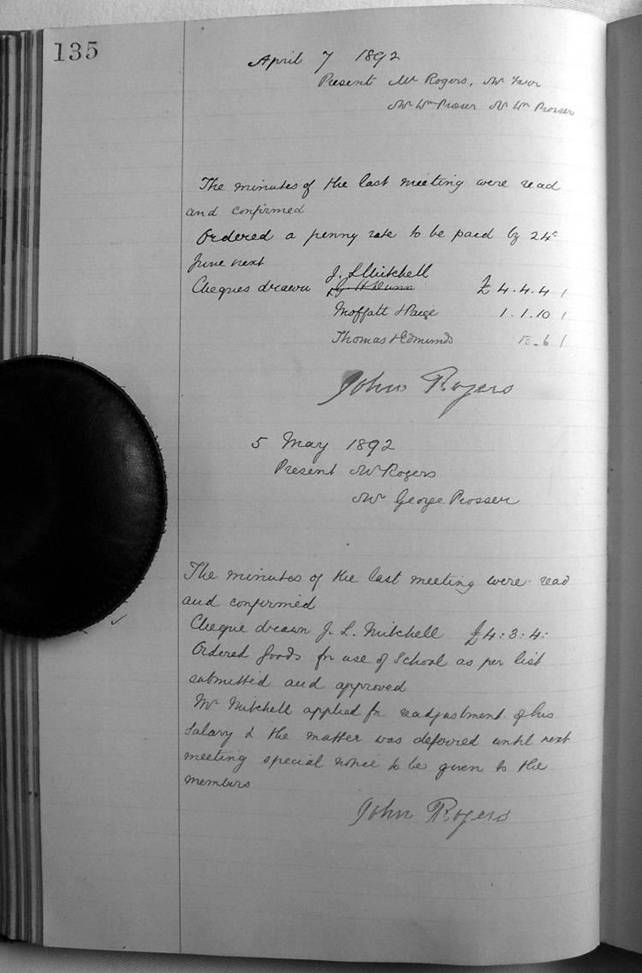 135
April 7 1892
Present Mr Rogers, Mr
Mr Wm Prosser Mr Wm Prosser
The minutes of the last meeting were read
and confirmed
Ordered a penny rate to be paid by 24
June next
J. L Mitchell
Cheques drawn £ 4.4.4 /
Moffatt & Paige 1.1.10 /
Thomas & Edmunds 13-6 /
John Rogers
5 May 1892
Present Mr Rogers
Mr George Prosser
The minutes of the last meeting were read
and confirmed
Cheque drawn J. L. Mitchell £4:3:4:
Ordered goods for use of School as per list
submitted and approved
Mr Mitchell applied for readjustment of his
Salary & the matter was deferred until next
meeting special notice to be given to the
members
John Rogers